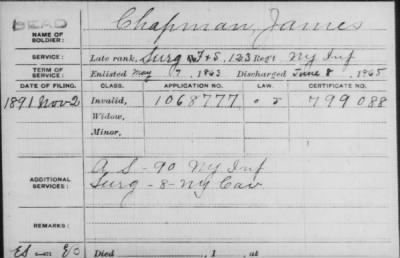 DEAD
NAME OF SOLDIER: Chapman, James
SERVICE: Late rank, Surg F+S, 123 Reg't Ny Inf
TERM OF SERVICE: Enlisted May 17, 1863 Discharged June 8, 1865
DATE OF FILING. CLASS. APPLICATION NO. LAW. CERTIFICATE NO.
1891 Nov 2 Invalid, 1068777 799088
Widow,
Minor,
ADDITIONAL SERVICES: A S - 90 Ny Inf
Surg - 8 - Ny Cav
REMARKS:
Died , 1 , at